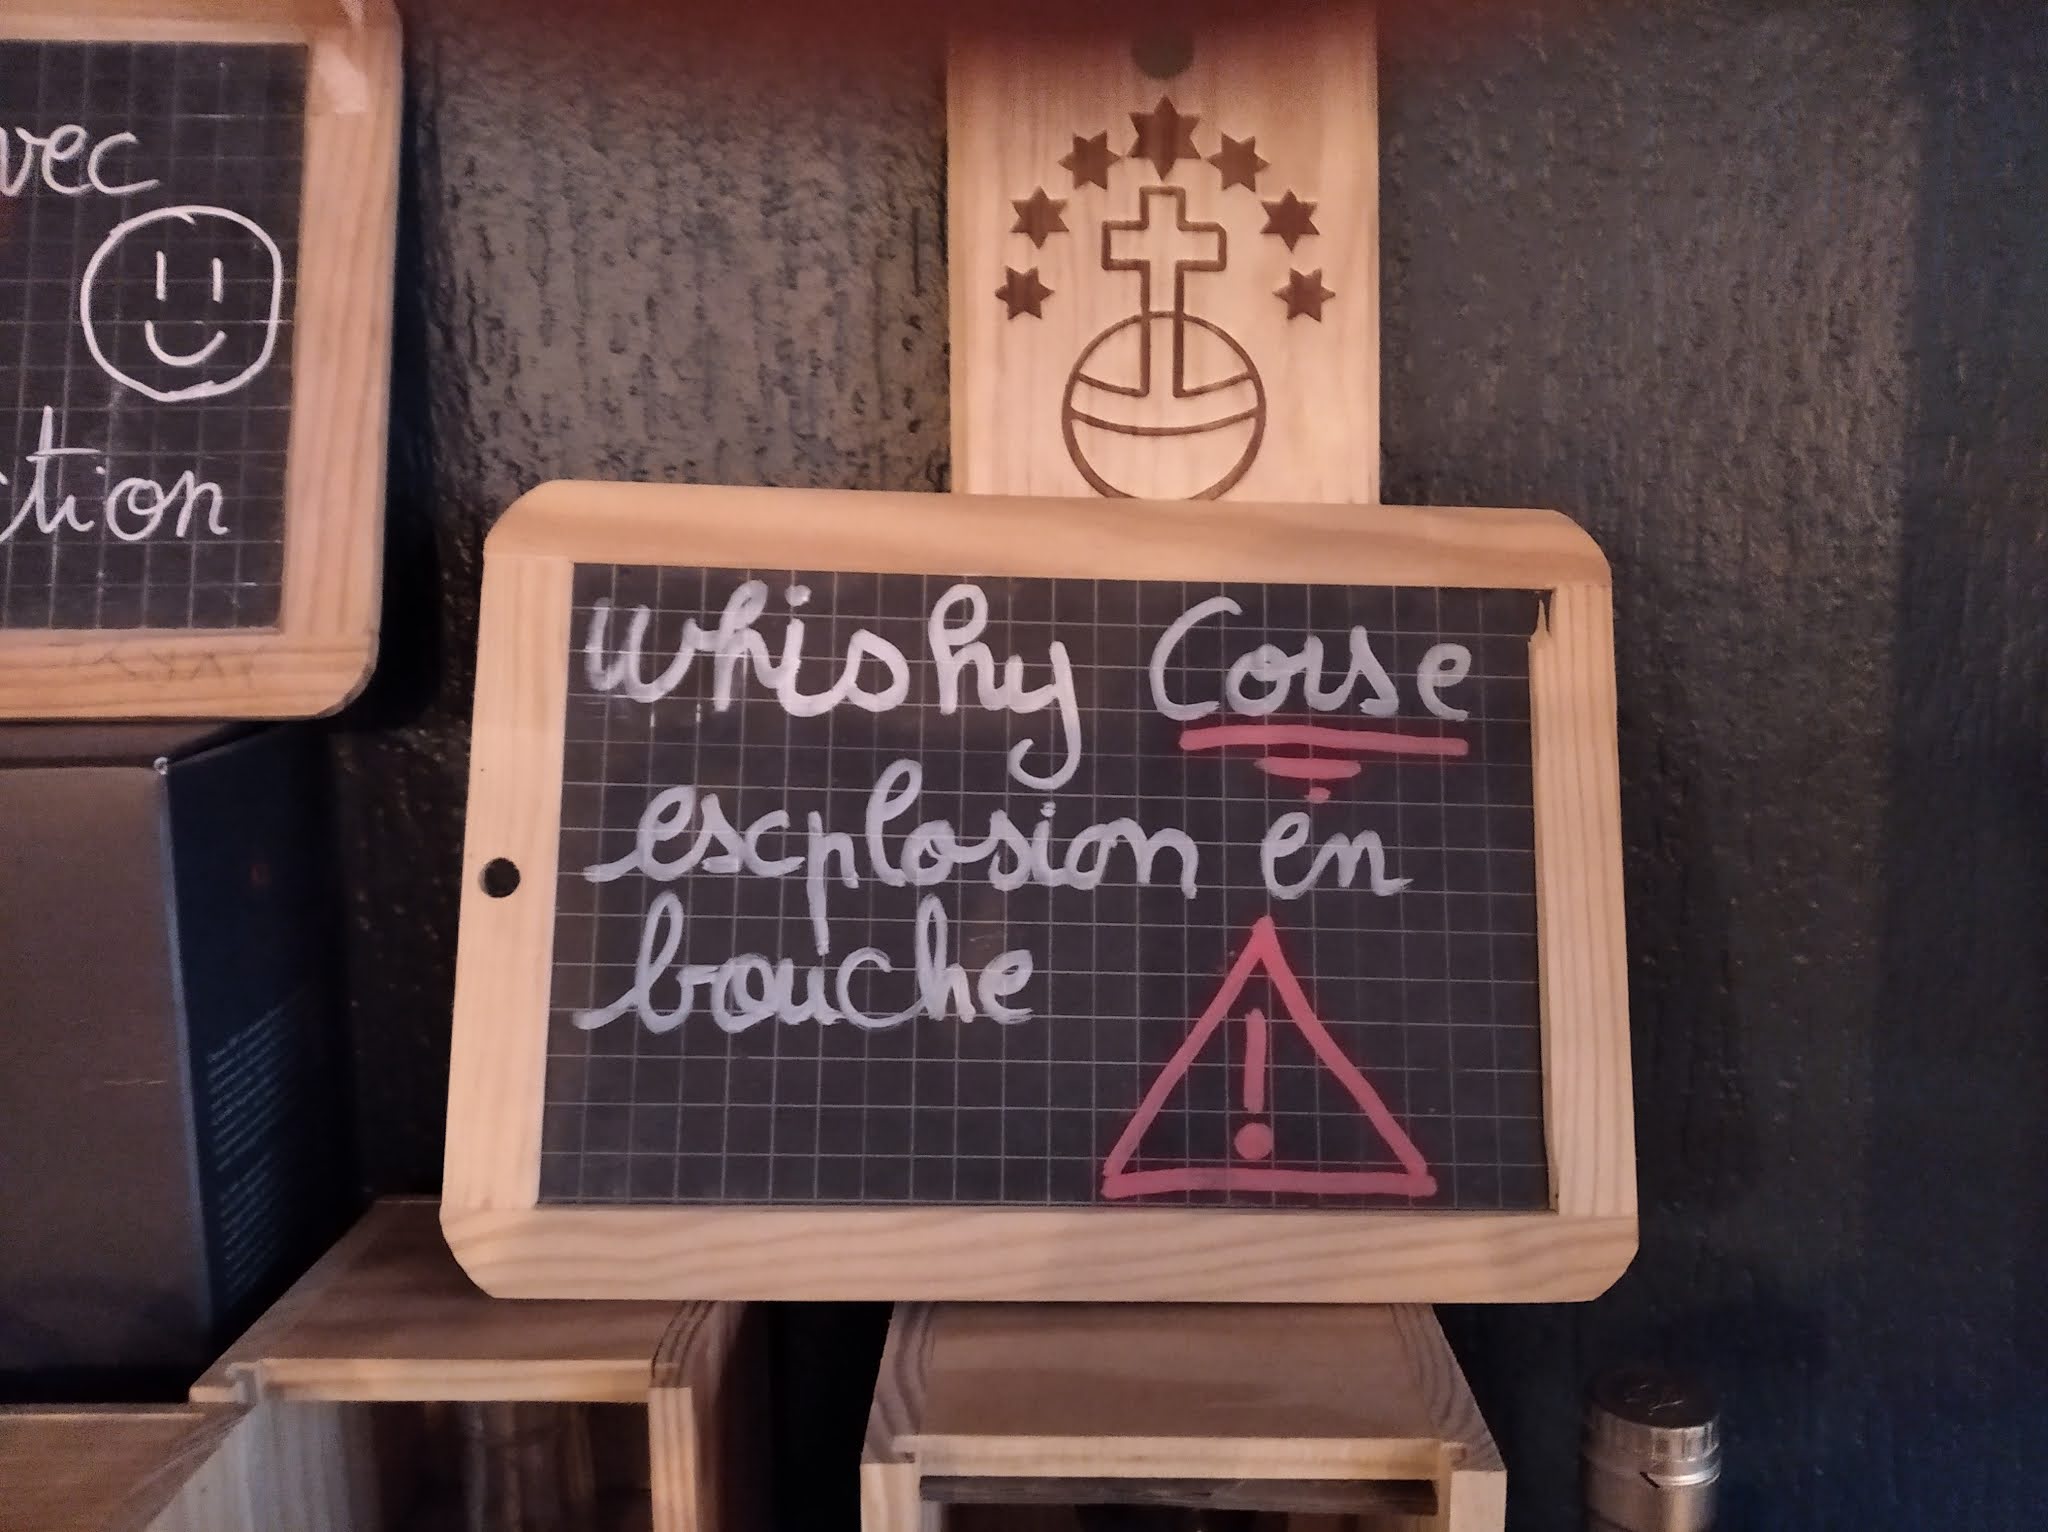 vec
ction
Whisky Corse
explosion en
bouche